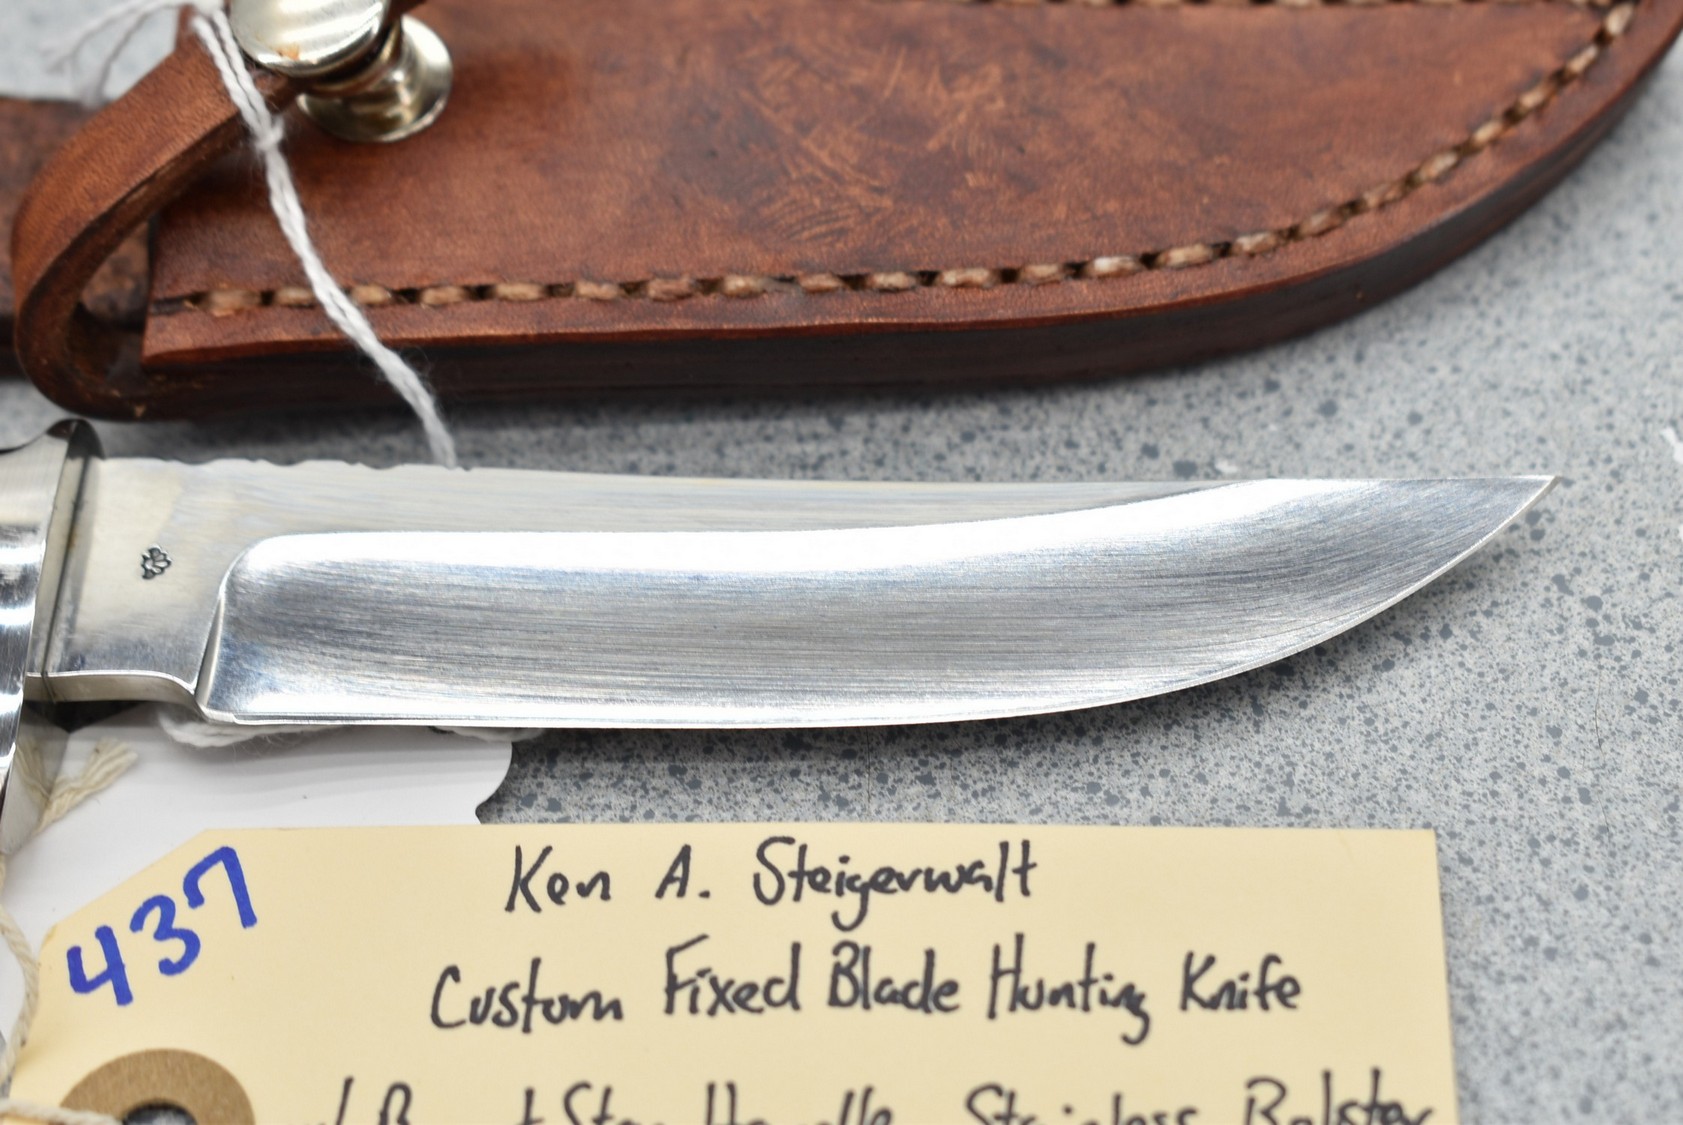 437
Ken A. Steigerwalt
Custom Fixed Blade Hunting Knife
Stag Handle, Stainless Bolster